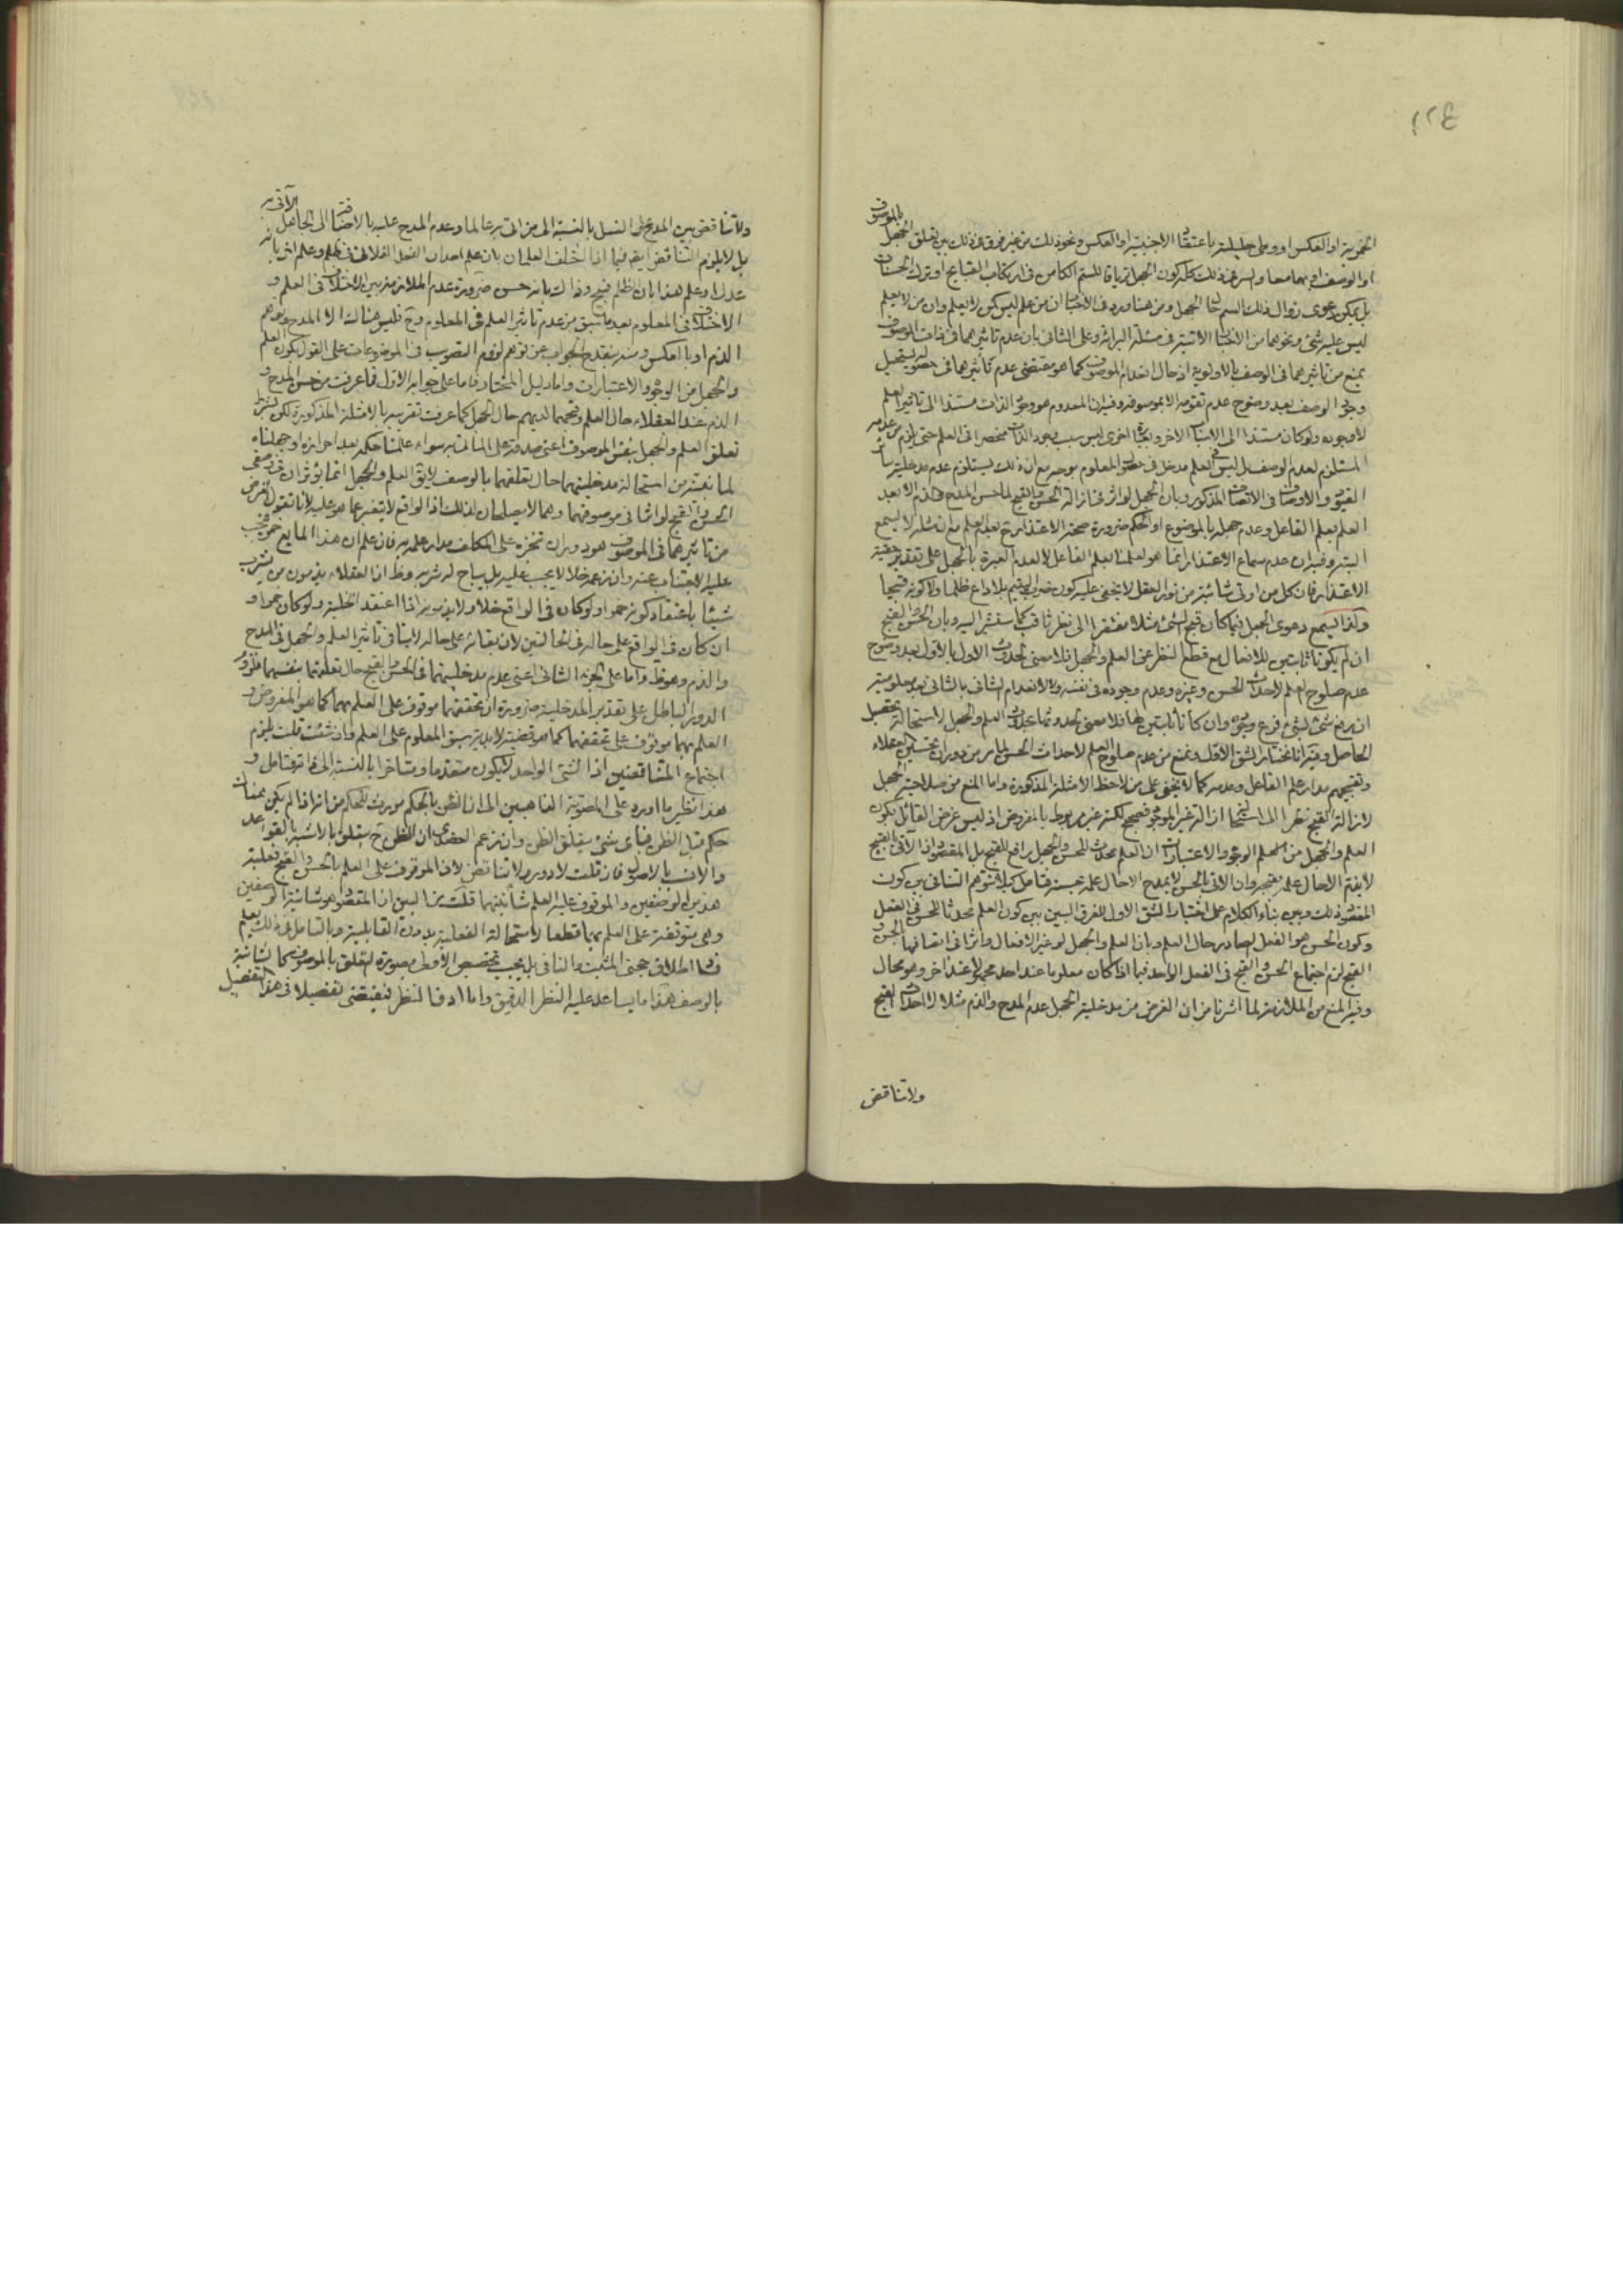 ١٢٤
الخمرية او العكس او وطى حليلته باعتقاد الاجنبية او العكس ونحو ذلك من غير فرق فى ذلك بين تعلق الجهل بالموصوف
او الوصف او بهما معا وليس فى ذلك كله كون الجهل ترياقا للسم الكامن فى ارتكاب القبايح او ترك الحسنات
بل يمكن دعوى زوال ذلك السم حال الجهل ومن هنا ورد فى الاخبار ان من علم ليس كمن لا يعلم وان من لا يعلم
ليس عليه شئ ونحوهما من الاخبار الاتية فى مسئلة البرائة وعلى الثانى بان عدم تاثيرهما فى ذات الموصوف
يمنع من تاثيرهما فى الوصف بالاولوية اذ حال انعدام الموصوف كما هو مقتضى عدم تاثيرهما فى حصوله يستحيل
وجود الوصف بعد وضوح عدم تقومه الا بموصوفه وفيه ان المعدوم هو وجود الذات مستندا الى تاثير العلم
لا وجوده ولو كان مستندا الى الاسباب الاخر وبعبارة اخرى ليس سبب وجود الذات منحصرا فى العلم حتى يلزم من عدمه
المستلزم لعدم الوصف بل ليس العلم مدخل فى حصول المعلوم بوجه مع ان ذلك يستلزم عدم مدخلية سائر
القيود والاوصاف فى الاتصاف المذكور وبان الجهل لو اثر فى ازالة الحسن والقبح لما حسن المدح والذم الا بعد
العلم بعلم الفاعل وعدم جهله بالموضوع او الحكم ضرورة صحة الاعتذار ح بعدم العلم مع ان مثله لا يسمع
البتة وفيه ان عدم سماع الاعتذار انما هو لعلمنا بعلم الفاعل لا لعدم العبرة بالجهل على تقدير حقية
الاعتذار فان كل من اوتى شائبة من نور العقل لا يخفى عليه كون ضرب اليتيم بلا داع ظلما ولا كونه قبيحا
ولذا يسمع دعوى الجهل فيما كان قبح الشئ مثلا مفتقرا الى نظر ثاقب كما ستشير اليه وبان الحسن والقبح
ان لم يكونا ثابتين للافعال مع قطع النظر عن العلم والجهل فلا معنى لحدوث الاول بالاول بعد وضوح
عدم صلوح العلم لاحداث الحسن وغيره وعدم وجوده فى نفسه ولا لانعدام الثانى بالثانى بعد معلومية
ان رفع شئ لشئ فرع وجوده وان كانا ثابتين لها فلا معنى لحدوثهما بحدوث العلم والجهل لاستحالة تحصيل
الحاصل وفيه انا نختار الشق الاول ونمنع من عدم صلوح العلم لاحداث الحسن لما مر من دوران تحسين العقلاء
وتقبيحهم مدار علم الفاعل وعدمه كما لا يخفى على من لاحظ الامثلة المذكورة واما المنع من صلاحية الجهل
لازالة القبح نظرا الى استحالة ازالة غير الموجود فصحيح لكنه غير مربوط بالمفروض اذ ليس غرض القائل بكون
العلم والجهل من الوجوه والاعتبارات ان العلم محدث للحسن والجهل رافع للقبح بل المقصود ان الآتى بالقبيح
لا يذم الا حال علمه بقبحه وان الاتى بالحسن لا يمدح الا حال علمه بحسنه فتامل كيلا تتوهم التنافى بين كون
المقصود ذلك وبين بناء الكلام على اختيار الشق الاول للفرق البين بين كون العلم محدثا للحسن فى الفعل
وكون الحسن هو الفعل الصادر حال العلم وبان العلم والجهل لو غيرا الافعال واثرا فى اتصافها بالحسن و
القبح لزم اجتماع الحسن والقبح فى الفعل الواحد فيما اذا كان معلوما عند احد مجهولا عند آخر وهو محال
وفيه المنع من الملازمة لما اشرنا من ان الغرض من مدخلية الجهل عدم المدح والذم مثلا لا احداث القبح
ولا تناقض
ولا تناقض بين المدح على الفعل بالنسبة الى من اتى به عالما وعدم المدح عليه بالاضافة الى الجاهل الآتى به
بل لا يلزم التناقض ايضا فيما اذا اختلف العلمان بان علم احد ان الفعل الفلانى ظلم وعلم اخر بانه
عدل او علم هذا بان الظلم قبيح وذاك بانه حسن ضرورة عدم الملازمة بين الاختلاف فى العلم و
الاختلاف فى المعلوم بعد ما سبق من عدم تاثير العلم فى المعلوم وح فليس هنالك الا المدح وعدم
الذم او بالعكس ومنه ينقدح الجواب عن توهم لزوم التصويب فى الموضوعات على القول بكون العلم
والجهل من الوجوه والاعتبارات واما دليل المختار فاما على جوابه الاول فما عرفت من حسن المدح و
الذم عند العقلاء حال العلم وقبحهما لديهم حال الجهل كما عرفت تقريبه بالامثلة المذكورة لكن بشرط
تعلق العلم والجهل بنفس الموصوف اعنى صدقه على المأتى به سواء علمنا حكمه بعد احرازه او جهلناه
لما نبينه من استحالة مدخليتهما حال تعلقهما بالوصف لا يق العلم والجهل انما يؤثران فى وصفى
الحسن والقبح لو اثرا فى موصوفهما وهما لا يصلحان لذلك اذ الواقع لا يتغير عما هو عليه لانا نقول الغرض
من تاثيرهما فى الموصوف هو دوران تنجزه على المكلف مدار علمه به فان علم ان هذا المايع خمر يجب
عليه الاجتناب عنه وان زعمه خلا لا يجب عليه بل يباح له شربه وظ ان العقلاء يذمون من شرب
شيئا باعتقاد كونه خمرا ولو كان فى الواقع خلا ولا يذمونه اذا اعتقد الخلية ولو كان خمرا و
ان كان فى الواقع على حاله فى الحالتين لان بقائه على حاله لا ينافى تاثير العلم والجهل فى المدح
والذم وهو ظ واما على الجزء الثانى اعنى عدم مدخليتهما فى الحسن والقبح حال تعلقهما بنفسهما فللزوم
الدور الباطل على تقدير المدخلية ضرورة ان تحققهما موقوف على العلم بهما كما هو المفروض و
العلم بهما موقوف على تحققهما كما هو قضية لابدية سبق المعلوم على العلم وان شئت قلت يلزم
اجتماع المتناقضين اذ الشئ الواحد لا يكون متقدما ومتاخرا بالنسبة الى ذاته فتامل و
هذا نظير ما اورد على المصوبة الذاهبين الى ان الظن بالحكم مورث للحكم من انه اذا لم يكن هناك
حكم قبل الظن فباى شئ يتعلق الظن وان زعم العضدى ان الظن ح يتعلق بالاشبه بالقواعد
والانسب بالاصول فان قلت لا دور ولا تناقض لان الموقوف على العلم بالحسن والقبح فعلية
هذين الوصفين والموقوف عليه العلم شأنيتهما قلت من البين ان المقصود هو شانية الوصفين
وهى متوقفة على العلم بهما قطعا لاستحالة الفعلية بدون القابلية وبالتامل فى ذلك يعلم
فساد اطلاق حجتى المثبت والنافى بل يجب تخصيص الاولى بصورة التعلق بالموصوف كما الثانية
بالوصف هذا ما يساعد عليه النظر الدقيق واما ادق النظر فيقتضى تفصيلا فى هذا التفصيل